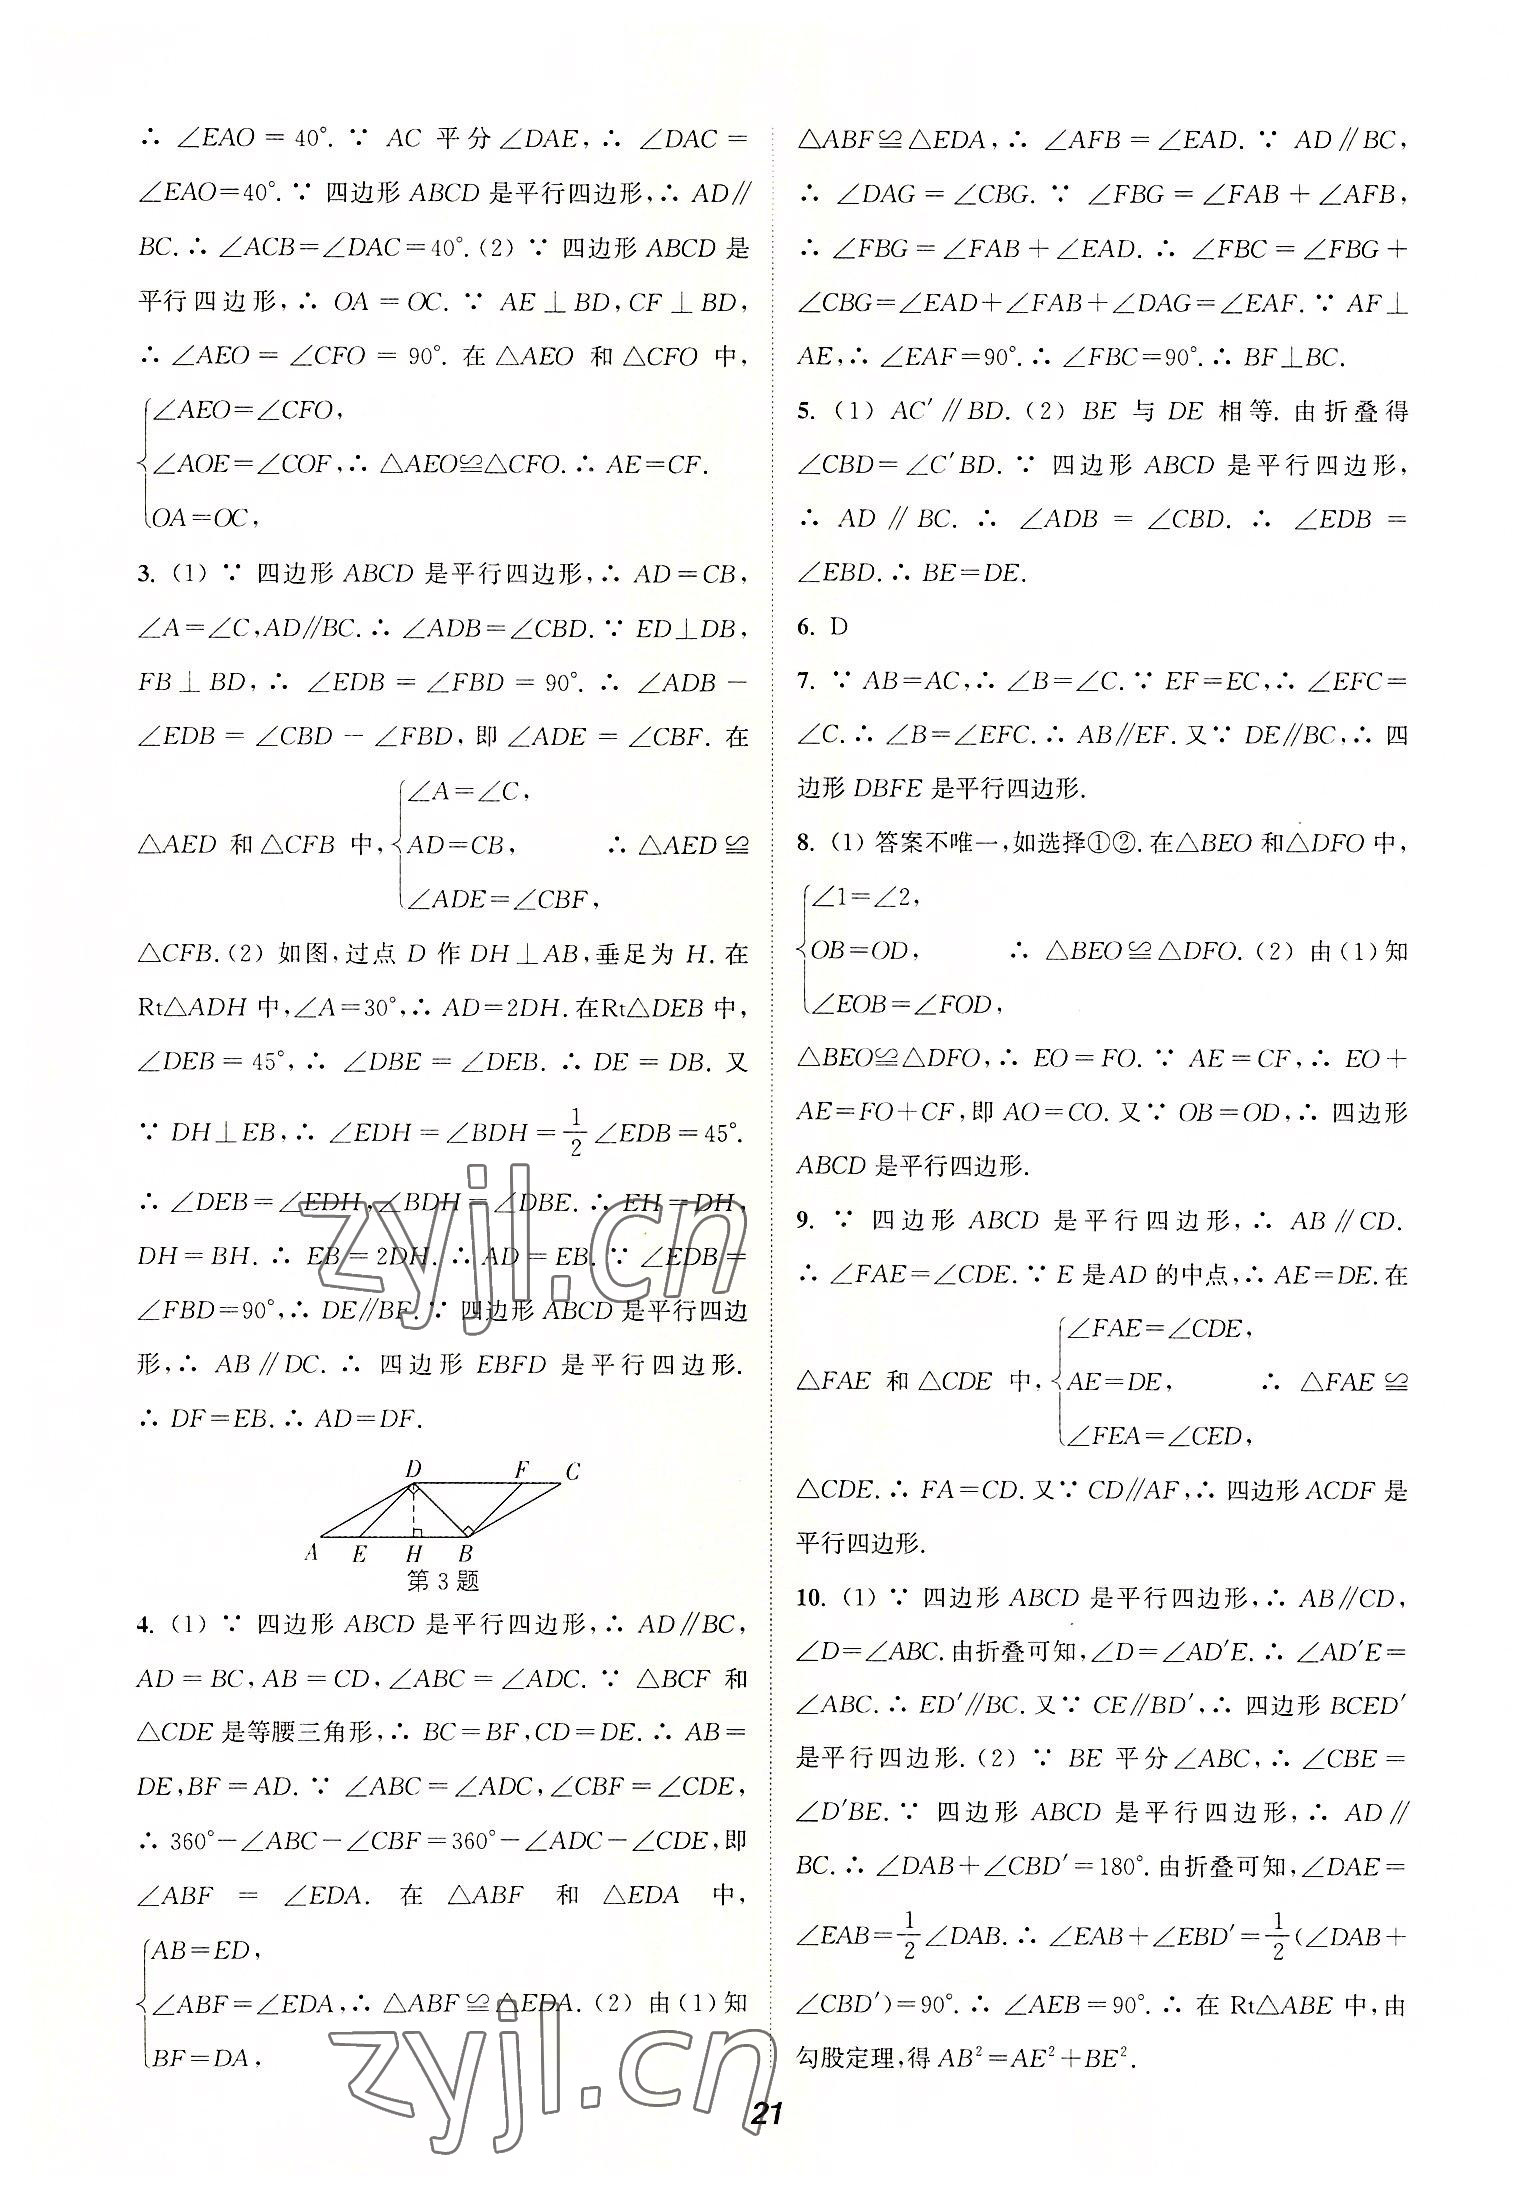 ∴ ∠EAO=40°. ∵ AC 平分∠DAE, ∴ ∠DAC=
∠EAO=40°. ∵ 四边形 ABCD 是平行四边形, ∴ AD∥
BC. ∴ ∠ACB=∠DAC=40°. (2) ∵ 四边形 ABCD 是
平行四边形, ∴ OA=OC. ∵ AE⊥BD, CF⊥BD,
∴ ∠AEO=∠CFO=90°. 在△AEO 和△CFO 中,
∠AEO=∠CFO,
∠AOE=∠COF, ∴ △AEO≌△CFO. ∴ AE=CF.
OA=OC,
3. (1) ∵ 四边形 ABCD 是平行四边形, ∴ AD=CB,
∠A=∠C, AD∥BC. ∴ ∠ADB=∠CBD. ∵ ED⊥DB,
FB⊥BD, ∴ ∠EDB=∠FBD=90°. ∴ ∠ADB-
∠EDB=∠CBD-∠FBD, 即∠ADE=∠CBF. 在
∠A=∠C,
△AED 和△CFB 中, AD=CB, ∴ △AED≌
∠ADE=∠CBF,
△CFB. (2) 如图, 过点 D 作 DH⊥AB, 垂足为 H. 在
Rt△ADH 中, ∠A=30°, ∴ AD=2DH. 在Rt△DEB 中,
∠DEB=45°, ∴ ∠DBE=∠DEB. ∴ DE=DB. 又
∵ DH⊥EB, ∴ ∠EDH=∠BDH=1/2∠EDB=45°.
∴ ∠DEB=∠EDH, ∠BDH=∠DBE. ∴ EH=DH,
DH=BH. ∴ EB=2DH. ∴ AD=EB. ∵ ∠EDB=
∠FBD=90°, ∴ DE∥BF. ∵ 四边形 ABCD 是平行四边
形, ∴ AB∥DC. ∴ 四边形 EBFD 是平行四边形.
∴ DF=EB. ∴ AD=DF.
D F C
A E H B
第 3 题
4. (1) ∵ 四边形 ABCD 是平行四边形, ∴ AD∥BC,
AD=BC, AB=CD, ∠ABC=∠ADC. ∵ △BCF 和
△CDE 是等腰三角形, ∴ BC=BF, CD=DE. ∴ AB=
DE, BF=AD. ∵ ∠ABC=∠ADC, ∠CBF=∠CDE,
∴ 360°-∠ABC-∠CBF=360°-∠ADC-∠CDE, 即
∠ABF=∠EDA. 在△ABF 和△EDA 中,
AB=ED,
∠ABF=∠EDA, ∴ △ABF≌△EDA. (2) 由(1)知
BF=DA,
△ABF≌△EDA, ∴ ∠AFB=∠EAD. ∵ AD∥BC,
∴ ∠DAG=∠CBG. ∵ ∠FBG=∠FAB+∠AFB,
∴ ∠FBG=∠FAB+∠EAD. ∴ ∠FBC=∠FBG+
∠CBG=∠EAD+∠FAB+∠DAG=∠EAF. ∵ AF⊥
AE, ∴ ∠EAF=90°. ∴ ∠FBC=90°. ∴ BF⊥BC.
5. (1) AC′∥BD. (2) BE 与 DE 相等. 由折叠得
∠CBD=∠C′BD. ∵ 四边形 ABCD 是平行四边形,
∴ AD∥BC. ∴ ∠ADB=∠CBD. ∴ ∠EDB=
∠EBD. ∴ BE=DE.
6. D
7. ∵ AB=AC, ∴ ∠B=∠C. ∵ EF=EC, ∴ ∠EFC=
∠C. ∴ ∠B=∠EFC. ∴ AB∥EF. 又∵ DE∥BC, ∴ 四
边形 DBFE 是平行四边形.
8. (1) 答案不唯一, 如选择①②. 在△BEO 和△DFO 中,
∠1=∠2,
OB=OD, ∴ △BEO≌△DFO. (2) 由(1)知
∠EOB=∠FOD,
△BEO≌△DFO, ∴ EO=FO. ∵ AE=CF, ∴ EO+
AE=FO+CF, 即 AO=CO. 又∵ OB=OD, ∴ 四边形
ABCD 是平行四边形.
9. ∵ 四边形 ABCD 是平行四边形, ∴ AB∥CD.
∴ ∠FAE=∠CDE. ∵ E 是AD 的中点, ∴ AE=DE. 在
∠FAE=∠CDE,
△FAE 和△CDE 中, AE=DE, ∴ △FAE≌
∠FEA=∠CED,
△CDE. ∴ FA=CD. 又∵ CD∥AF, ∴ 四边形 ACDF 是
平行四边形.
10. (1) ∵ 四边形 ABCD 是平行四边形, ∴ AB∥CD,
∠D=∠ABC. 由折叠可知, ∠D=∠AD′E. ∴ ∠AD′E=
∠ABC. ∴ ED′∥BC. 又∵ CE∥BD′, ∴ 四边形 BCED′
是平行四边形. (2) ∵ BE 平分∠ABC, ∴ ∠CBE=
∠D′BE. ∵ 四边形 ABCD 是平行四边形, ∴ AD∥
BC. ∴ ∠DAB+∠CBD′=180°. 由折叠可知, ∠DAE=
∠EAB=1/2∠DAB. ∴ ∠EAB+∠EBD′=1/2(∠DAB+
∠CBD′)=90°. ∴ ∠AEB=90°. ∴ 在 Rt△ABE 中, 由
勾股定理, 得 AB²=AE²+BE².
21
zyjl.cn
zyjl.cn